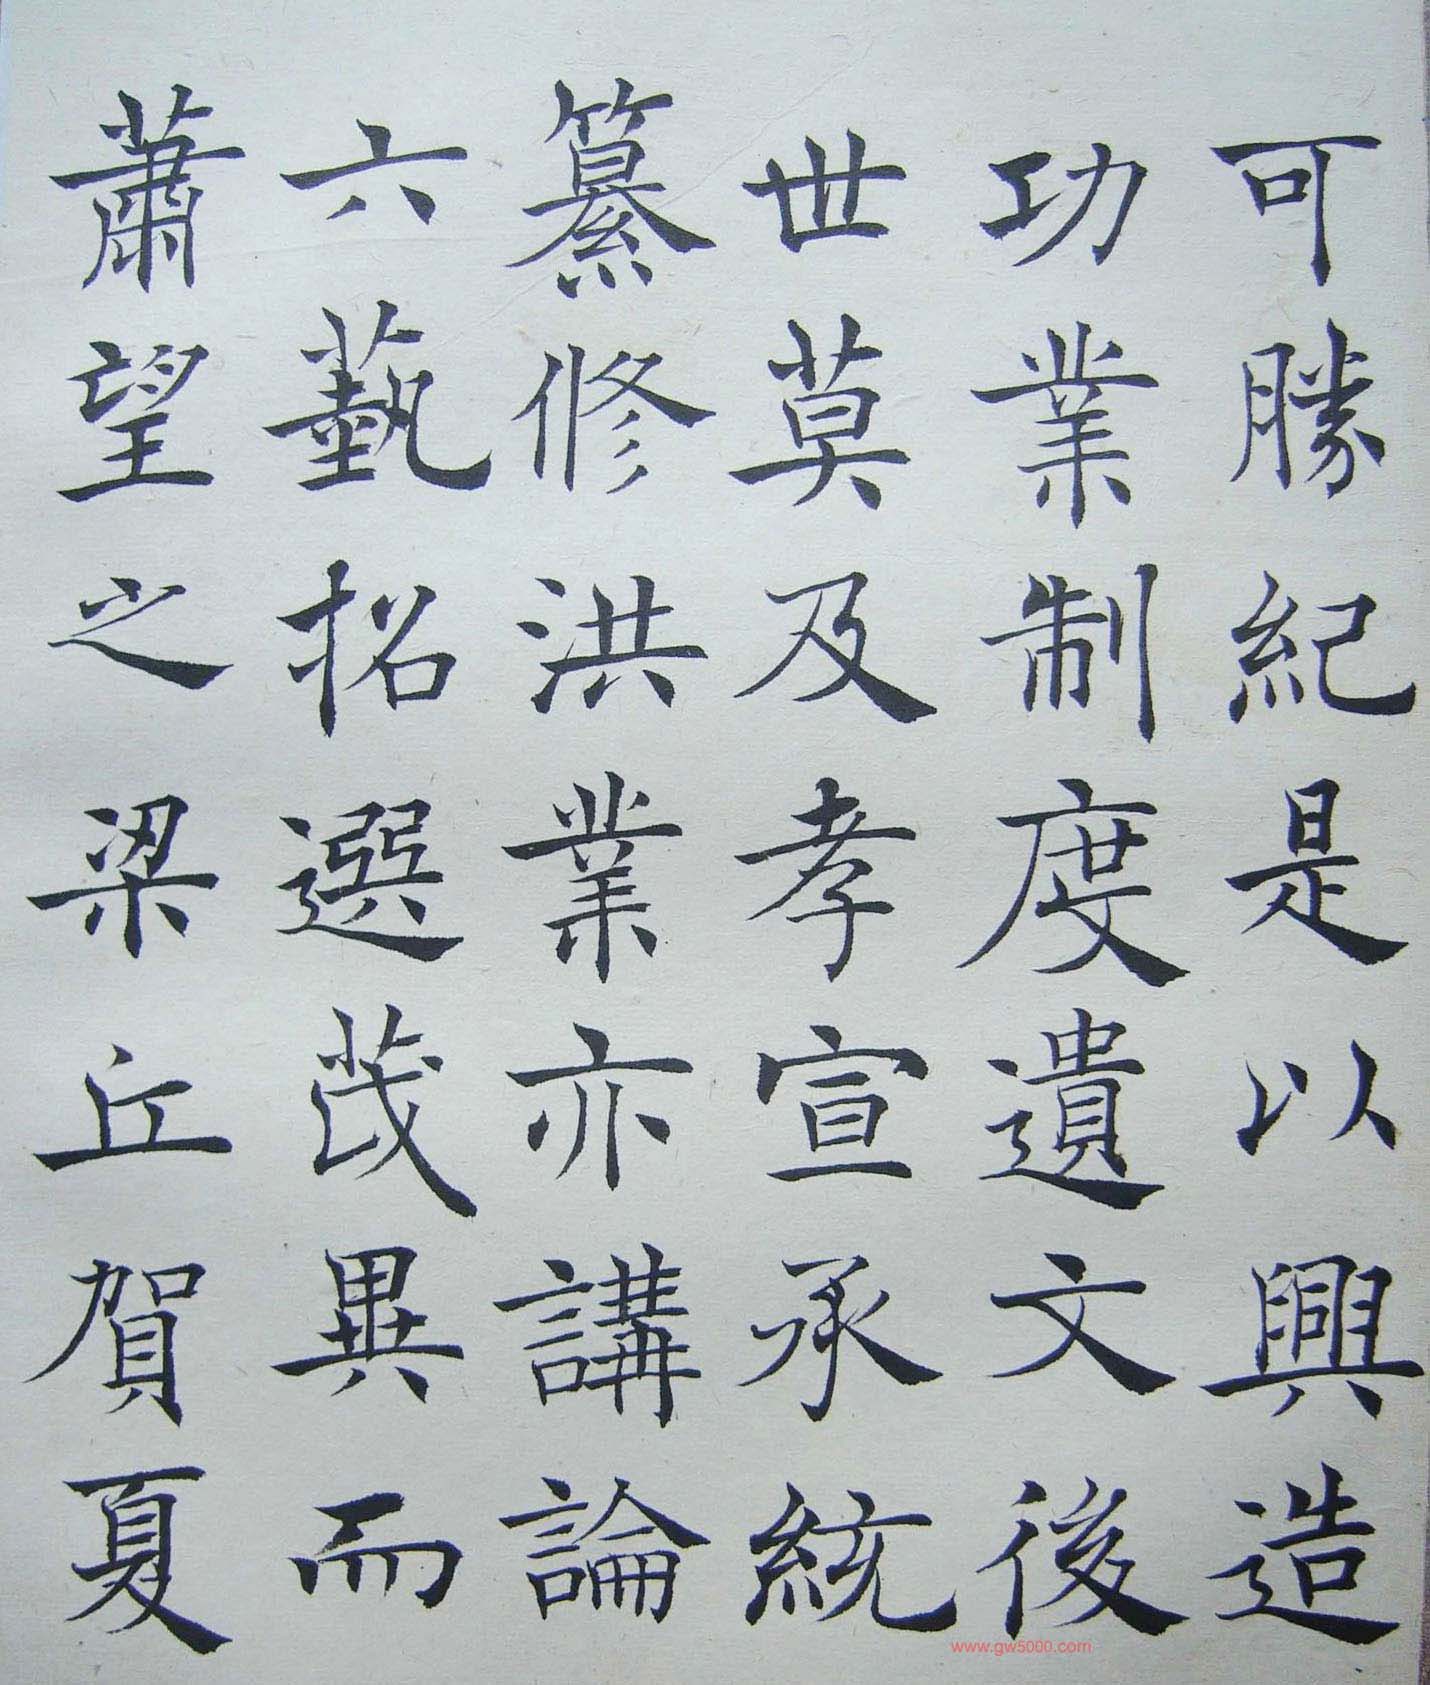 可勝紀是以興造
功業制度遺文後
世莫及孝宣承統
纂修洪業亦講論
六藝招選茂異而
蕭望之梁丘賀夏
www.gw5000.com